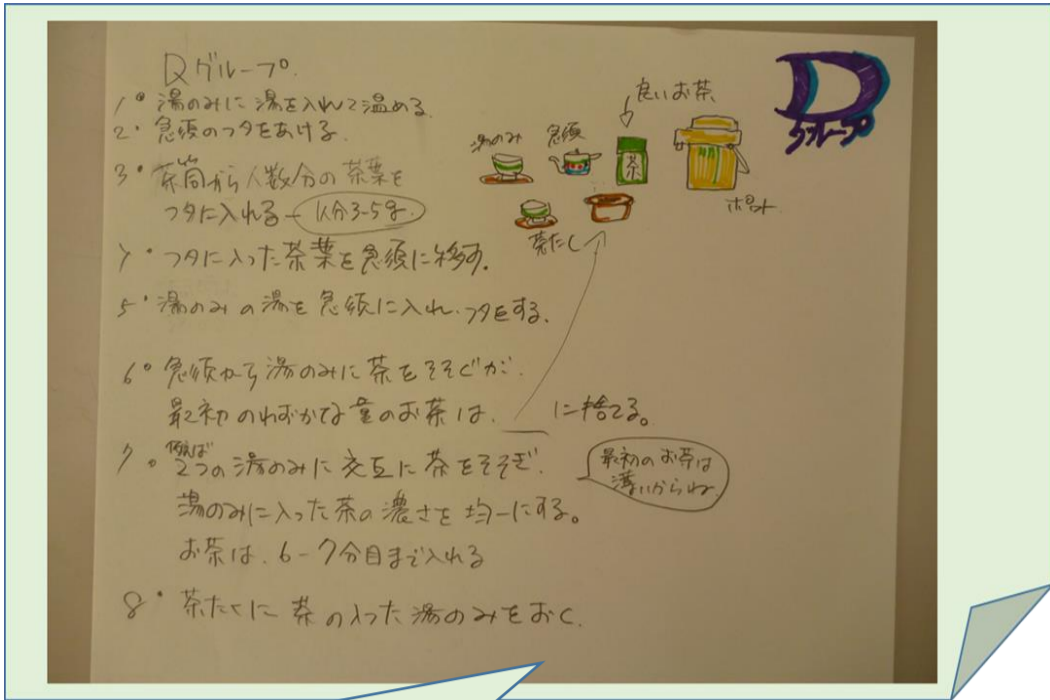 Dグループ.
1° 湯のみに湯を入れて温める.
2・急須のフタをあける.
3・茶筒から人数分の茶葉を
フタに入れる - 1人分3-5g.
・フタに入った茶葉を急須に移す.
5・湯のみの湯を急須に入れ.フタをする.
6° 急須から湯のみに茶をそそぐが.
最初のわずかな量のお茶は. に捨てる。
7。例えば
2つの湯のみに交互に茶をそそぎ.
湯のみに入った茶の濃さを均一にする。
お茶は. 6-7分目まで入れる
8・茶たくに茶の入った湯のみをおく.
最初のお茶は
薄いからね.
良いお茶
湯のみ
急須
茶
ポット
茶たく
D
グループ